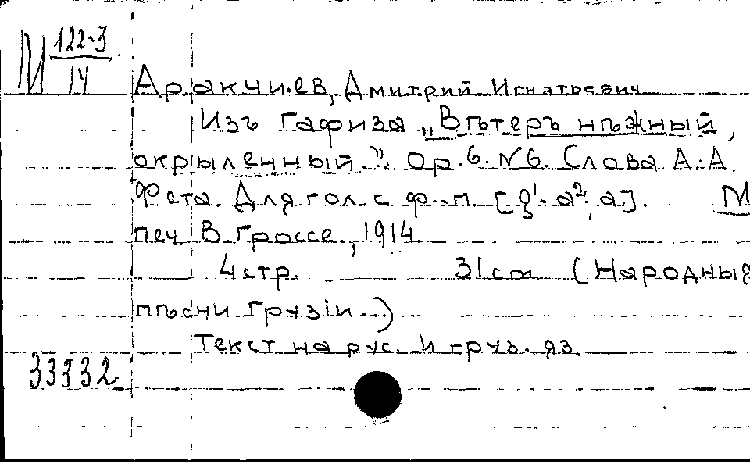 М 122-3
14
Аракчиев, Дмитрий Игнатьевич
Изъ Гафиза „Вѣтеръ нѣжный,
окрыленный". Ор. 6. №6. Слова А. А.
Фета. Для гол. с ф.-п. [g¹-a², a]. М
печ. В. Гроссе, 1914
4 стр. 31 см (Народныя
пѣсни Грузіи..)
Текст на рус. и груз. яз.
33332